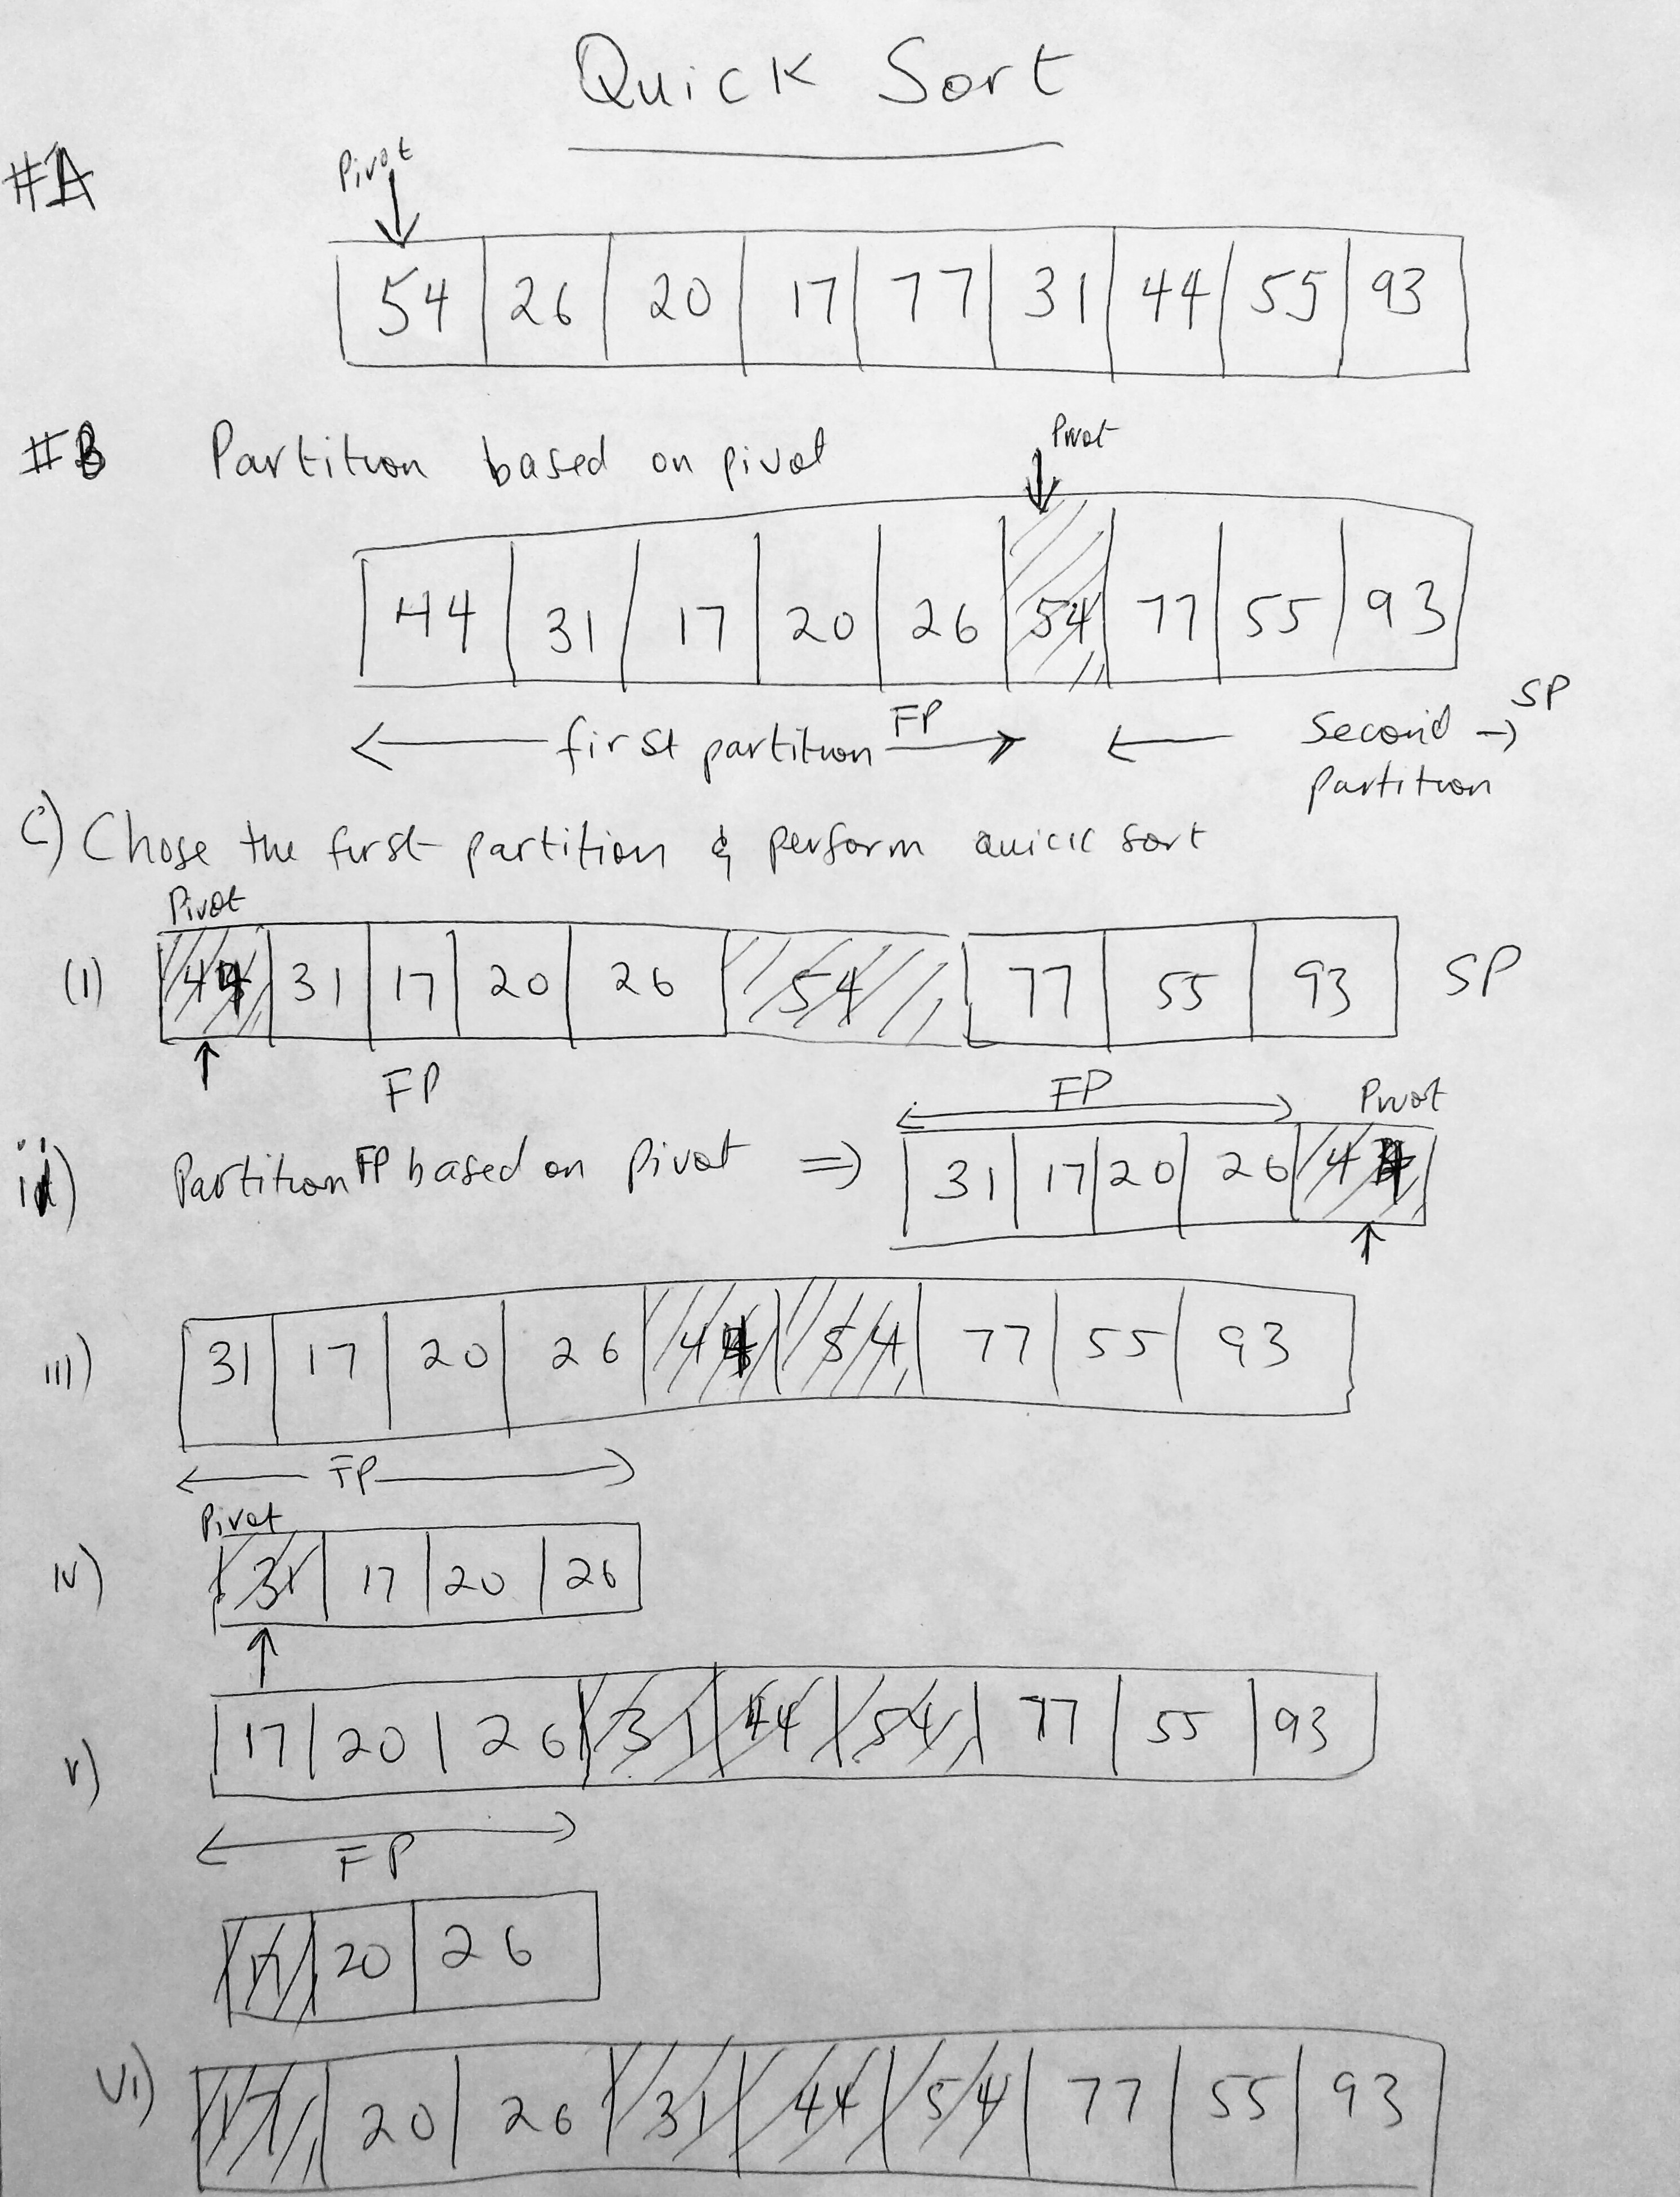 Quick Sort
#A
Pivot
54 26 20 17 77 31 44 55 93
#B Partition based on pivot
Pivot
44 31 17 20 26 54 77 55 93
first partition FP Second partition SP
C) Chose the first partition & perform quick sort
Pivot
(i) 44 31 17 20 26 54 77 55 93 SP
FP
FP Pivot
ii) Partition FP based on pivot => 31 17 20 26 44
iii) 31 17 20 26 44 54 77 55 93
FP
Pivot
iv) 31 17 20 26
v) 17 20 26 31 44 54 77 55 93
FP
17 20 26
vi) 17 20 26 31 44 54 77 55 93